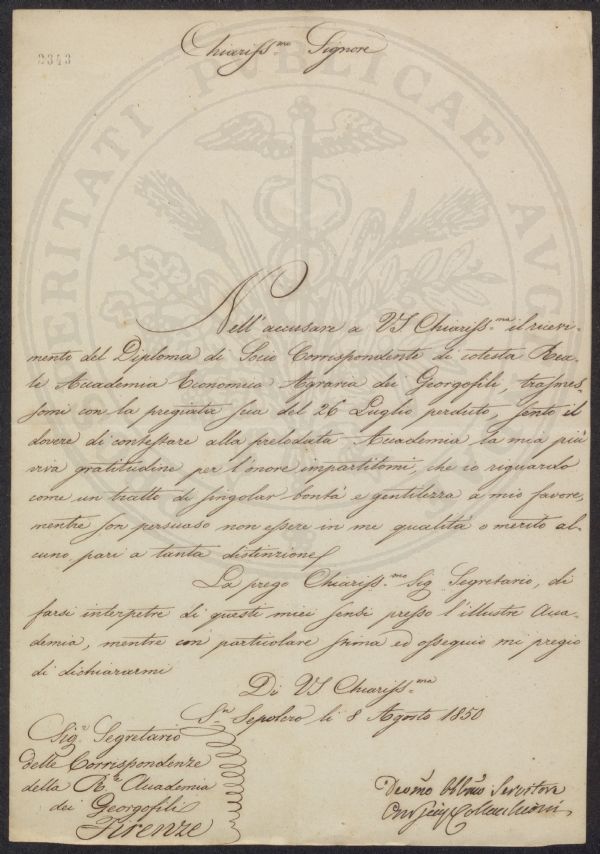 2343
Chiariss.mo Signore
PROSPERITATI PUBLICAE AUGENDAE
Nell'accusare a VS Chiariss.ma il ricevi-
mento del Diploma di Socio Corrispondente di cotesta Rea-
le Accademia Economico Agraria dei Georgofili, trasmes-
somi con la pregiata sua del 26 Luglio perduto, sento il
dovere di confessare alla prelodata Accademia la mia più
viva gratitudine per l'onore impartitomi, che io riguardo
come un tratto di singolar bontà e gentilezza a mio favore,
mentre son persuaso non essere in me qualità o merito al-
cuno pari a tanta distinzione
La prego Chiariss.mo Sig Segretario, di
farsi interpetre di questi miei sensi presso l'illustre Acca-
demia, mentre con particolare stima ed ossequio mi pregio
di dichiararmi
Di VS Chiariss.ma
S.n Sepolcro li 8 Agosto 1850
Sig.r Segretario
delle Corrispondenze
della R.le Accademia
dei Georgofili
Firenze
Devmo Obbmo Servitore